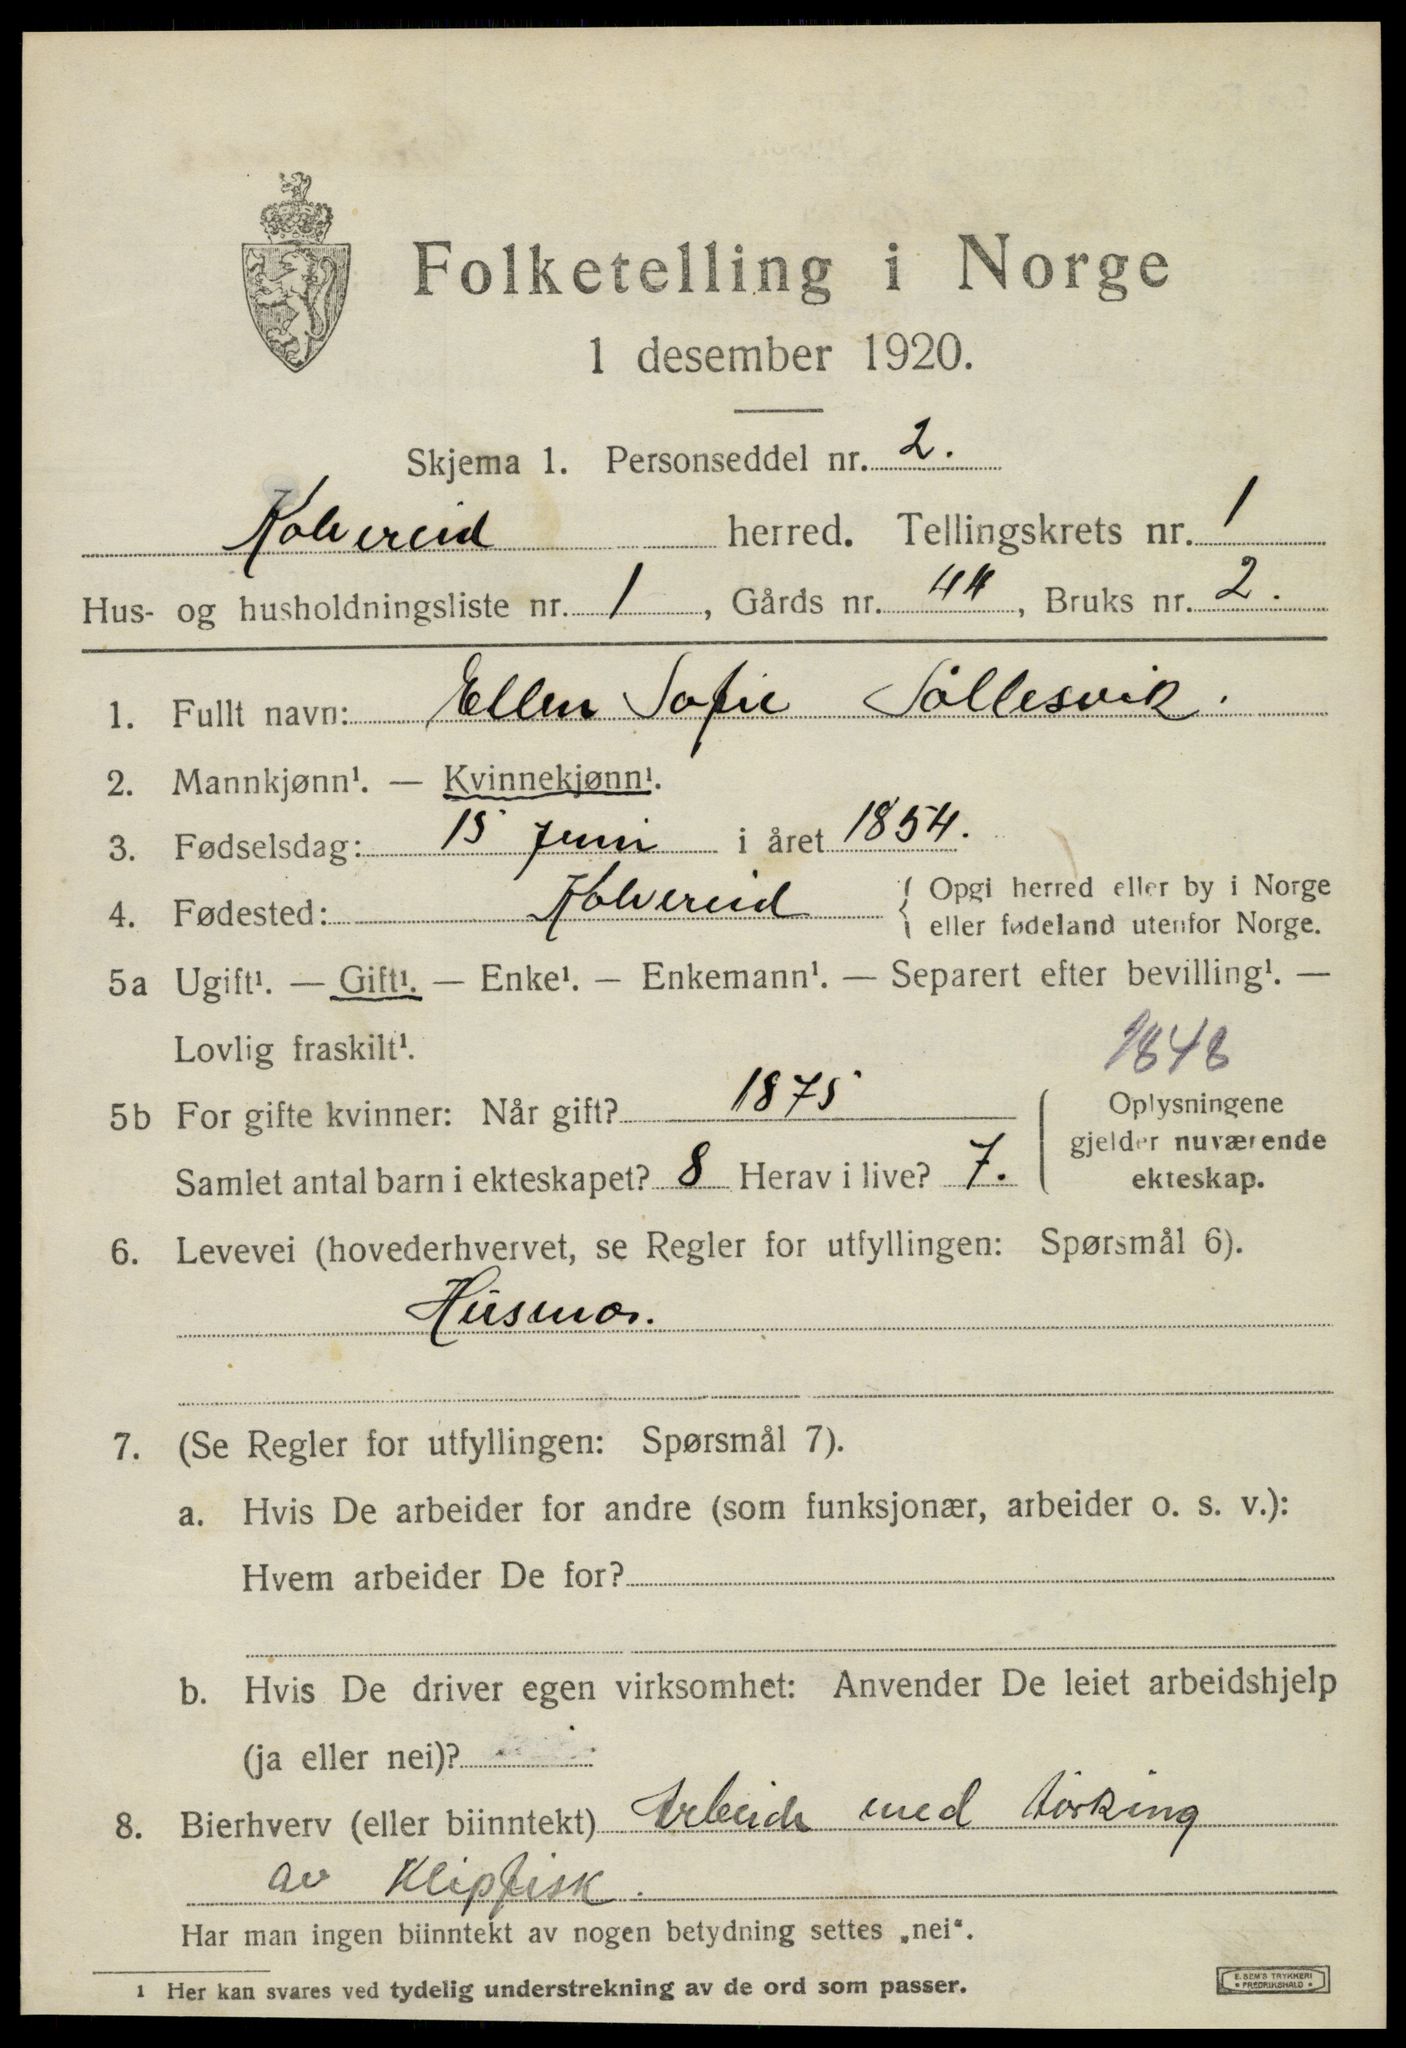 Folketelling i Norge
1 desember 1920.
Skjema 1. Personseddel nr. 2.
Kolvereid herred. Tellingskrets nr. 1
Hus- og husholdningsliste nr. 1, Gårds nr. 44, Bruks nr. 2.
1. Fullt navn: Ellen Sofie Sållesvik.
2. Mannkjønn¹. — Kvinnekjønn¹.
3. Fødselsdag: 15 juni i året 1854.
4. Fødested: Kolvereid { Opgi herred eller by i Norge
eller fødeland utenfor Norge.
5a Ugift¹. — Gift¹. — Enke¹. — Enkemann¹. — Separert efter bevilling¹. —
Lovlig fraskilt¹.
1848
5b For gifte kvinner: Når gift? 1875
Samlet antal barn i ekteskapet? 8 Herav i live? 7.
Oplysningene
gjelder nuværende
ekteskap.
6. Levevei (hovederhvervet, se Regler for utfyllingen: Spørsmål 6).
Husmor.
7. (Se Regler for utfyllingen: Spørsmål 7).
a. Hvis De arbeider for andre (som funksjonær, arbeider o. s. v.):
Hvem arbeider De for?
b. Hvis De driver egen virksomhet: Anvender De leiet arbeidshjelp
(ja eller nei)?
8. Bierhverv (eller biinntekt) Arbeide med törking
av Klipfisk.
Har man ingen biinntekt av nogen betydning settes „nei“.
¹ Her kan svares ved tydelig understrekning av de ord som passer.
E. SEM'S TRYKKERI
FREDRIKSHALD